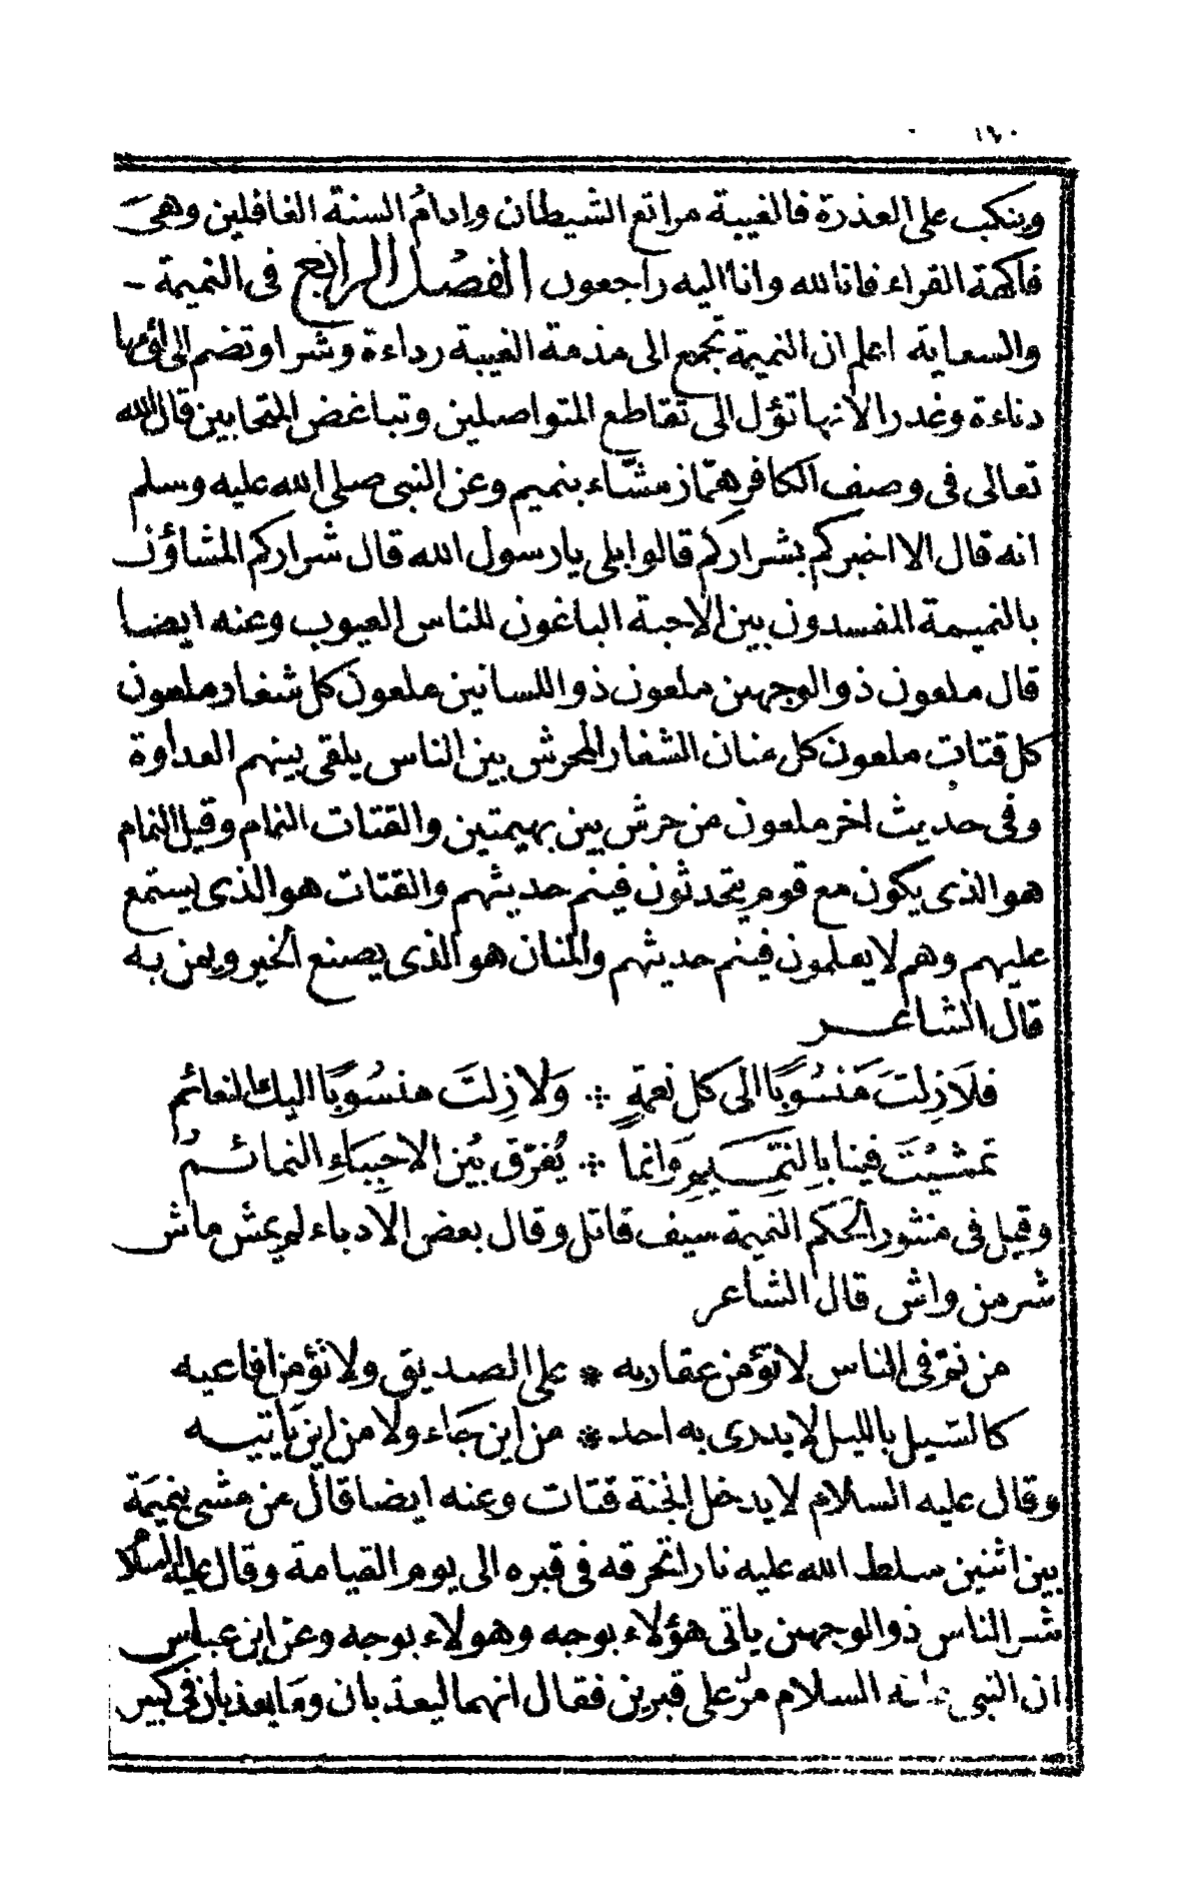 ١٩٠
وينكب على العذرة فالغيبة مراتع الشيطان وادامُ السنة الغافلين وهىَ
فاكهة القراء فانا لله وانا اليه راجعون الفصل الرابع فى النميمة
والسعاية اعلم ان النميمة تجمع الى مذمة الغيبة رداءة وشرا وتضم الى لؤمها
دناءة وغدرا لانها تؤل الى تقاطع المتواصلين وتباغض المتحابين قال الله
تعالى فى وصف الكافر همّاز مشّاء بنميم وعن النبى صلى الله عليه وسلم
انه قال الا اخبركم بشراركم قالوا بلى يا رسول الله قال شراركم المشاؤن
بالنميمة المفسدون بين الاحبة الباغون للناس العيوب وعنه ايضا
قال ملعون ذو الوجهين ملعون ذو اللسانين ملعون كل شغار ملعون
كل قتات ملعون كل منان الشغار المحرش بين الناس يلقى بينهم العداوة
وفى حديث اخر ملعون من حرش بين بهيمتين والقتات النمام وقيل النمام
هو الذى يكون مع قوم يتحدثون فينم حديثهم والقتات هو الذى يستمع
عليهم وهم لا يعلمون فينم حديثهم والمنان هو الذى يصنع الخير ويمن به
قال الشاعر
فلَا زِلتَ مَنسُوبًا الى كل نعمةٍ ∴ وَلا زِلتَ منسُوبًا اليك النعائم
تمشيْتَ فينا بالنَّميم وَانما ∴ يُفرّق بين الاحِبَاءِ النمائمُ
وقيل فى منثور الحكم النميمة سيف قاتل وقال بعض الادباء لم يمش ماش
شر من واش قال الشاعر
من نمّ فى الناس لا تؤمن عقاربه * على الصديق ولا تؤمن افاعيه
كالسّيل بالليل لا يدرى به احد * من اين جَاء ولا من اين يَاتيه
وقال عليه السلام لا يدخل الجنة قتات وعنه ايضا قال من مشى بنميمَة
بين اثنين سلط الله عليه نارا تحرقه فى قبره الى يوم القيامة وقال عليه السلام
شر الناس ذو الوجهين ياتى هؤلاء بوجه وهولاء بوجه وعن ابن عباس
ان النبى عليه السلام مرّ على قبرين فقال انهما ليعذبان ومَا يعذبان فى كبير